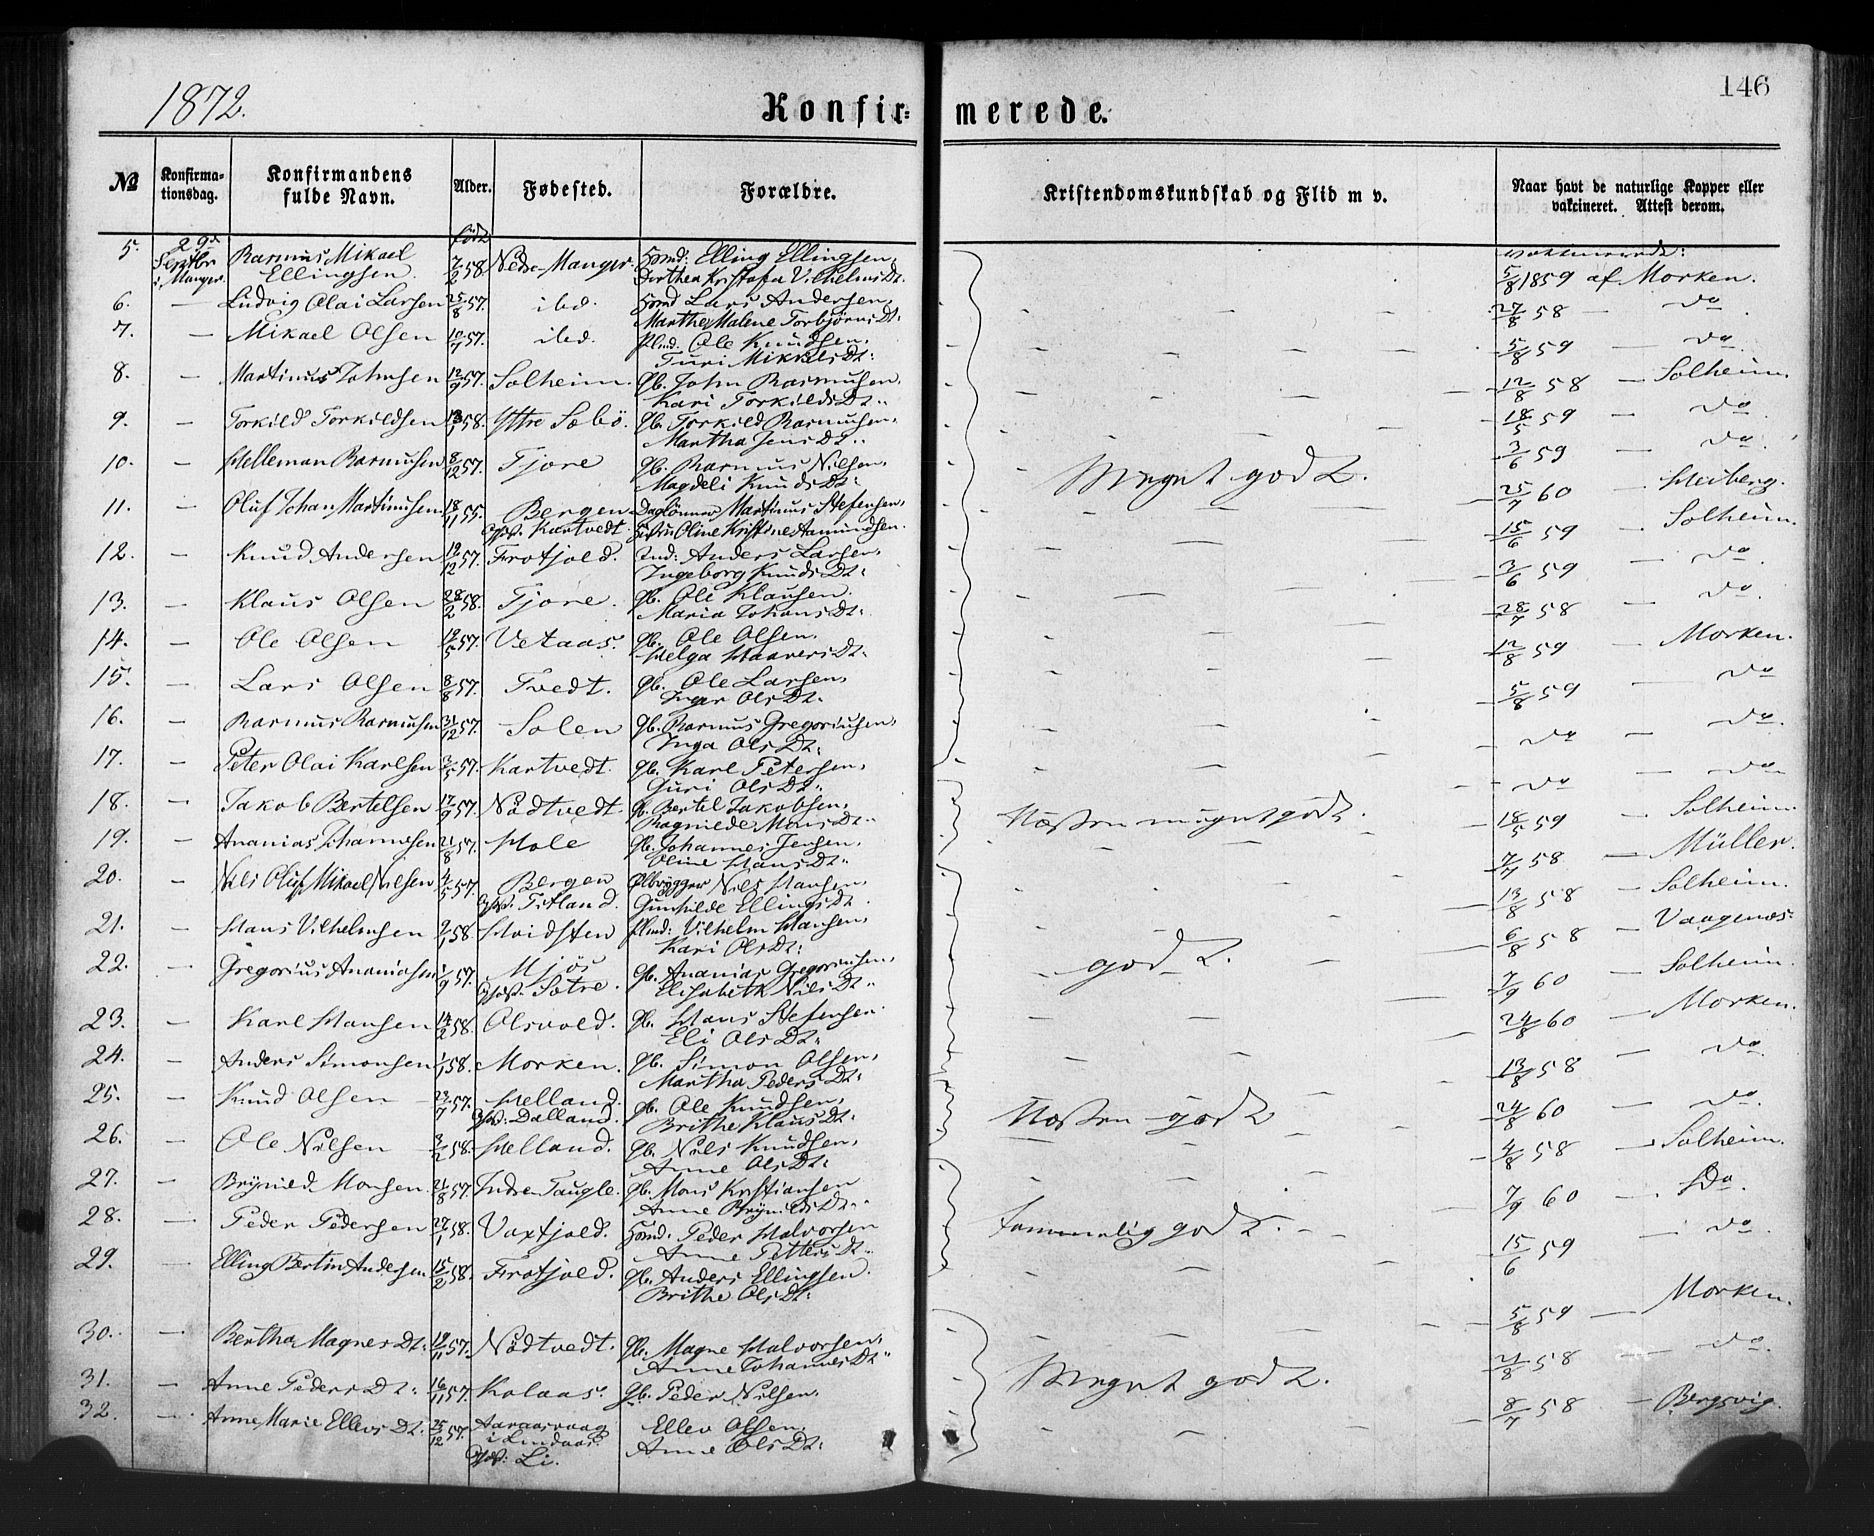 1872.
Konfir=
merede.
146
No
Konfirma-
tionsdag.
Konfirmandens
fulde Navn.
Alder.
Fødested.
Forældre.
Kristendomskundskab og Flid m v.
Naar havt de naturlige Kopper eller
vakcineret. Attest derom.
født
5. 29de Septbr i Manger. Rasmus Mikael Ellingsen 7/2 58. Nedre Manger. Hmd: Elling Ellingsen,
Dorthea Kristofa VilhelmsDt.
vakcinerede:
5/8 1859 af Morken.
6. — Ludvig Olai Larsen 25/8 57. ibd. Hmd Lars Andersen,
Marthe Malene TorbjørnsDt:
27/8 58 — do
7. — Mikael Olsen 10/7 57. ibd. Plmd. Ole Knudsen,
Turi MikkelsDt:
5/8 59 — do.
8. — Martinus Johnsen 12/9 57. Solheim. Gb. John Rasmusen.
Kari TorkildsDt:
12/8 58 — Solheim.
9. — Torkild Torkildsen 13/1 58. Yttre Sæbö. Gb. Torkild Rasmusen,
Martha JensDt:
18/5 59 — do
10. — Helleman Rasmusen 8/12 57. Tjore Gb. Rasmus Nilsen,
Magdeli KnudsDt:
Meget godt.
3/6 59 — do.
11. — Oluf Johan Martinusen 18/11 55. Bergen Daglönner Martinus Stefensen,
Opf. Kartvedt Hustru Oline Kristine Aamundsen.
25/7 60 — Heiberg.
12. — Knud Andersen 12/12 57. Frotjold. Ind: Anders Larsen,
Ingeborg KnudsDt:
15/6 59 — Solheim.
13. — Klaus Olsen 28/2 58. Tjore. Gb. Ole Klausen.
Maria JohansDt:
3/6 59 — do.
14. — Ole Olsen 12/5 57. Vetaas. Gb. Ole Olsen,
Helga HaaversDt:
28/7 58 — do.
15. — Lars Olsen 8/8 57. Tvedt. Gb. Ole Larsen,
Inger OlsDt.
12/8 59 — Morken.
16. — Rasmus Rasmusen 31/12 57. Solen Gb. Rasmus Gregoriusen,
Inga OlsDt:
5/8 59 — do
17. — Peter Olai Karlsen 3/5 57. Kartvedt. Gb. Karl Petersen,
Guri OlsDt:
do — do.
18. — Jakob Bertelsen 17/9 57. Nödtvedt. Gb. Bertel Jakobsen,
Ragnilde MonsDt:
Næsten meget godt.
do — do
19. — Ananias Johannesen 21/8 57. Hole Gb. Johannes Jensen,
Oline HansDt:
18/5 59 — Solheim.
20. — Nils Oluf Mikael Nilsen 4/5 57. Bergen Ølbrygger Nils Hansen,
Opf. Titland. Gunhilde EllingsDt.
7/7 58 — Müller.
21. — Hans Vilhelmsen 2/1 58. Hvidsten Plmd: Vilhelm Hansen,
Kari OlsDt:
13/8 58 — Solheim.
22. — Gregorius Ananiasen 1/9 57. Mjös Gb. Ananias Gregoriusen,
Opf. Sætre. Elisabeth NilsDt:
godt.
6/8 58 — Vaagenæs.
23. — Karl Hansen 14/2 58. Olsvold. Gb. Hans Stefensen
Eli OlsDt:
7/9 60 — Solheim.
24. — Anders Simonsen 1/1 58. Morken. Gb. Simon Olsen,
Martha PedersDt:
24/8 60 — Morken.
25. — Knud Olsen 23/7 57. Helland. Gb. Ole Knudsen,
Opf. Dalland. Brithe KlausDt:
Næsten godt
13/8 58 — do.
26. — Ole Nilsen 3/2 58. Helland. Gb. Nils Knudsen,
Anne OlsDt:
24/8 60 — do.
27. — Brynild Monsen 21/8 57. Indre Taugle. Gb. Mons Kristiansen
Anne BrynildsDt:
4/8 58 — Solheim.
28. — Peder Pedersen 27/1 58. Voxtjold. Hmd. Peder Halvorsen
Anne PettersDt:
temmelig godt.
7/9 60 — Do.
29. — Elling Bertin Andersen 15/2 58. Frotjold. Gb. Anders Ellingsen.
Brithe OlsDt:
15/6 59 — do.
30. — Bertha MagnesDt: 19/11 57. Nödtvedt. Gb. Magne Halvorsen,
Anne JohannesDt:
5/8 59 — Morken.
31. — Anne PedersDt: 16/11 57. Kolaas. Gb. Peder Nilsen.
Meget godt.
21/8 58 — do.
32. — Anne Marie EllevsDt. 25/12 57. Aaraasvaag Ellev Olsen,
i Lindaas. Anne OlsDt:
Opf: Li.
8/7 58 — Bergsvig.